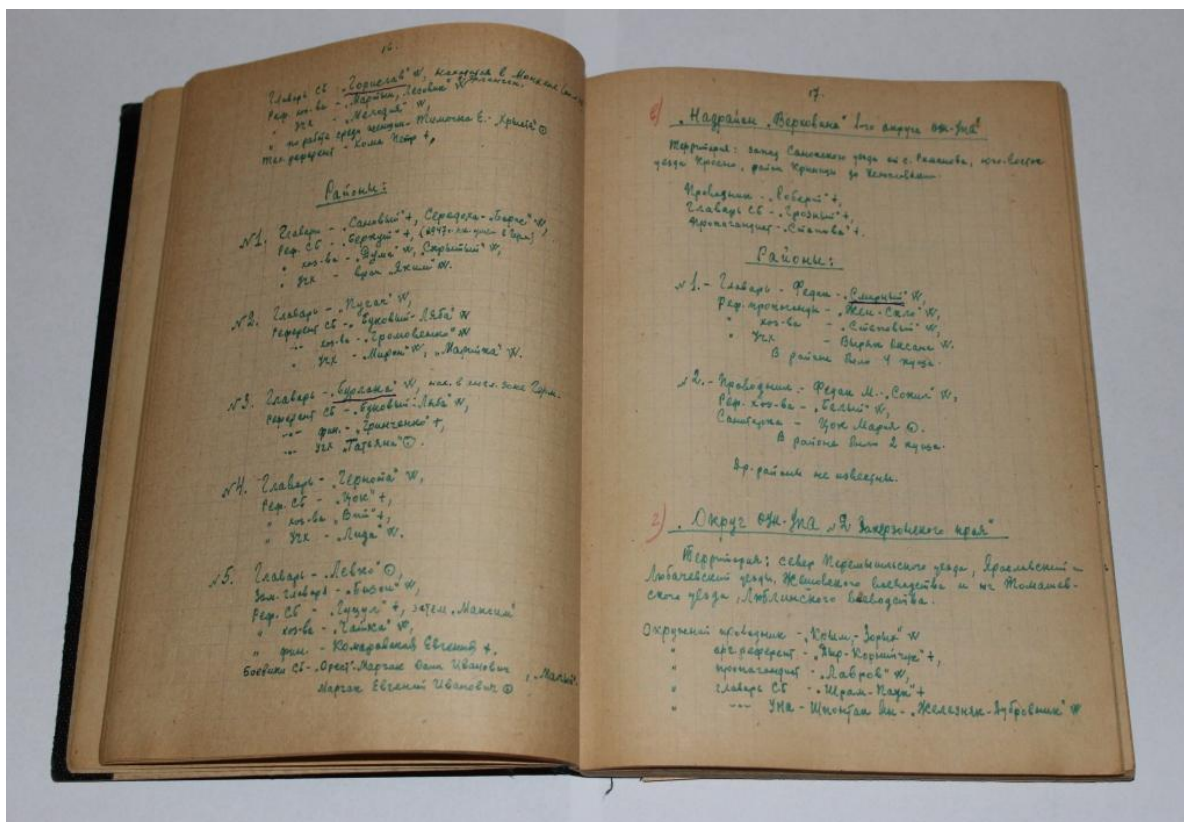 16.
Главарь СБ - „Горислав" W, находится в
Реф. хоз-ва - „Мартын, Лесовик" W
" УЧХ - „Мелодия" W,
" по работе среди женщин - Тимочко Е. - Христя" ⊙
Тех. референт - Кома Петр +,
Районы:
№1. Главари - „Садовый" +, Середоха - „Борис" W,
Реф. СБ - „Беркут" +,
" хоз-ва - „Дума" W, „Скрытый" W,
" УЧХ - врач „Яким" W.
№2. Главарь - „Пугач" W,
Референт СБ - „Буковый - Ляба" W
" хоз-ва - „Громовенко" W
" УЧХ - „Мирон" W, „Марийка" W.
№3. Главарь - „Бурлака" W, нах. в англ. зоне Герм.
Референт СБ - „Буковый - Ляба" W
" фин. - „Гринченко" +,
" УЧХ „Татьяна" ⊙.
№4. Главарь - „Чернота" W,
Реф. СБ - „Цок" +,
" хоз-ва „Вий" +,
" УЧХ - „Лида" W.
№5. Главарь - „Левко" ⊙,
Зам. главаря - „Бизон" W,
Реф. СБ - „Гуцул" +, затем „Максим"
" хоз-ва - „Чайка" W,
" фин. - Комаровская Евгения +.
Боевики СБ - „Орест" - Марчак Иванович
Марчак Евгений Иванович ⊙
17.
в) „Надрайон „Верховина" 1-го округа ОУН-УПА"
Территория: запад Санокского уезда от с. Команча, юго-восток
уезда Кросно, район Криницы до Чехословакии.
Проводник - „Роберт" +,
Главарь СБ - „Грозный" +,
Пропагандист - „Степова" +.
Районы:
№1. - Главарь - Федак - „Смирный" W,
Реф. пропаганды - „Жен - Сало" W,
" хоз-ва - „Степовый" W,
" УЧХ - Вырвя Оксана W.
В районе было 4 куща.
№2. - Проводник - Федак М. - „Сокил" W,
Реф. хоз-ва - „Белый" W,
Санитарка - Цок Мария ⊙.
В районе было 2 куща.
Др. районы не известны.
г) „Округ ОУН-УПА №2 Закерзонского края"
Территория: север Перемышльского уезда, Ярославский и
Любачевский уезды, Жешовского воеводства и юг Томашев-
ского уезда, Люблинского воеводства.
Окружной проводник - „Крым - Зорян" W
" орг. референт - „Дыр - Корнийчук" +,
" пропагандист - „Лавров" W,
" главарь СБ - „Шрам - Паук" +
" " УПА - Шпонтак Ив. - „Железняк - Дубровник" W